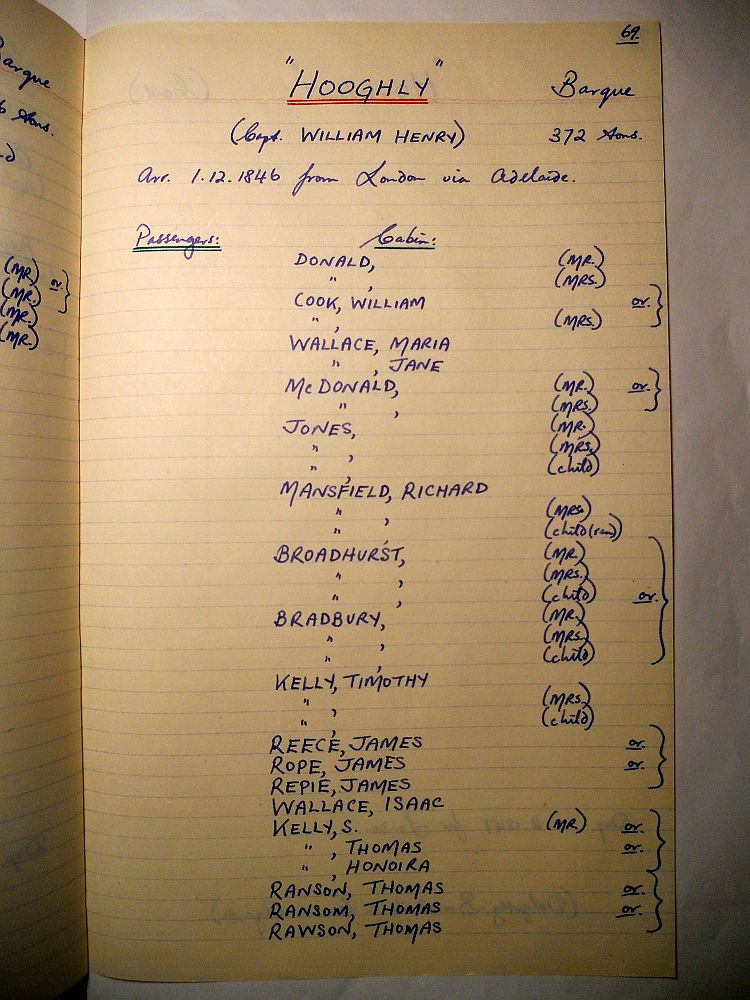 Barque
tons.
(MR) or.
(MR.)
(MR.)
(MR.)
69.
"HOOGHLY" Barque
(Capt. WILLIAM HENRY) 372 tons.
Arr. 1.12.1846 from London via Adelaide.
Passengers: Cabin:
DONALD, (MR.)
" , (MRS.)
COOK, WILLIAM or.
" , (MRS.)
WALLACE, MARIA
" , JANE
McDONALD, (MR.) or.
" , (MRS.)
JONES, (MR.)
" , (MRS.)
" , (child)
MANSFIELD, RICHARD
" , (MRS.)
" , (child(ren)
BROADHURST, (MR.)
" , (MRS.)
" , (child) or.
BRADBURY, (MR.)
" , (MRS.)
" , (child)
KELLY, TIMOTHY
" , (MRS.)
" , (child)
REECE, JAMES or.
ROPE, JAMES or.
REPIE, JAMES
WALLACE, ISAAC
KELLY, S. (MR) or.
" , THOMAS or.
" , HONOIRA
RANSON, THOMAS or.
RANSOM, THOMAS or.
RAWSON, THOMAS